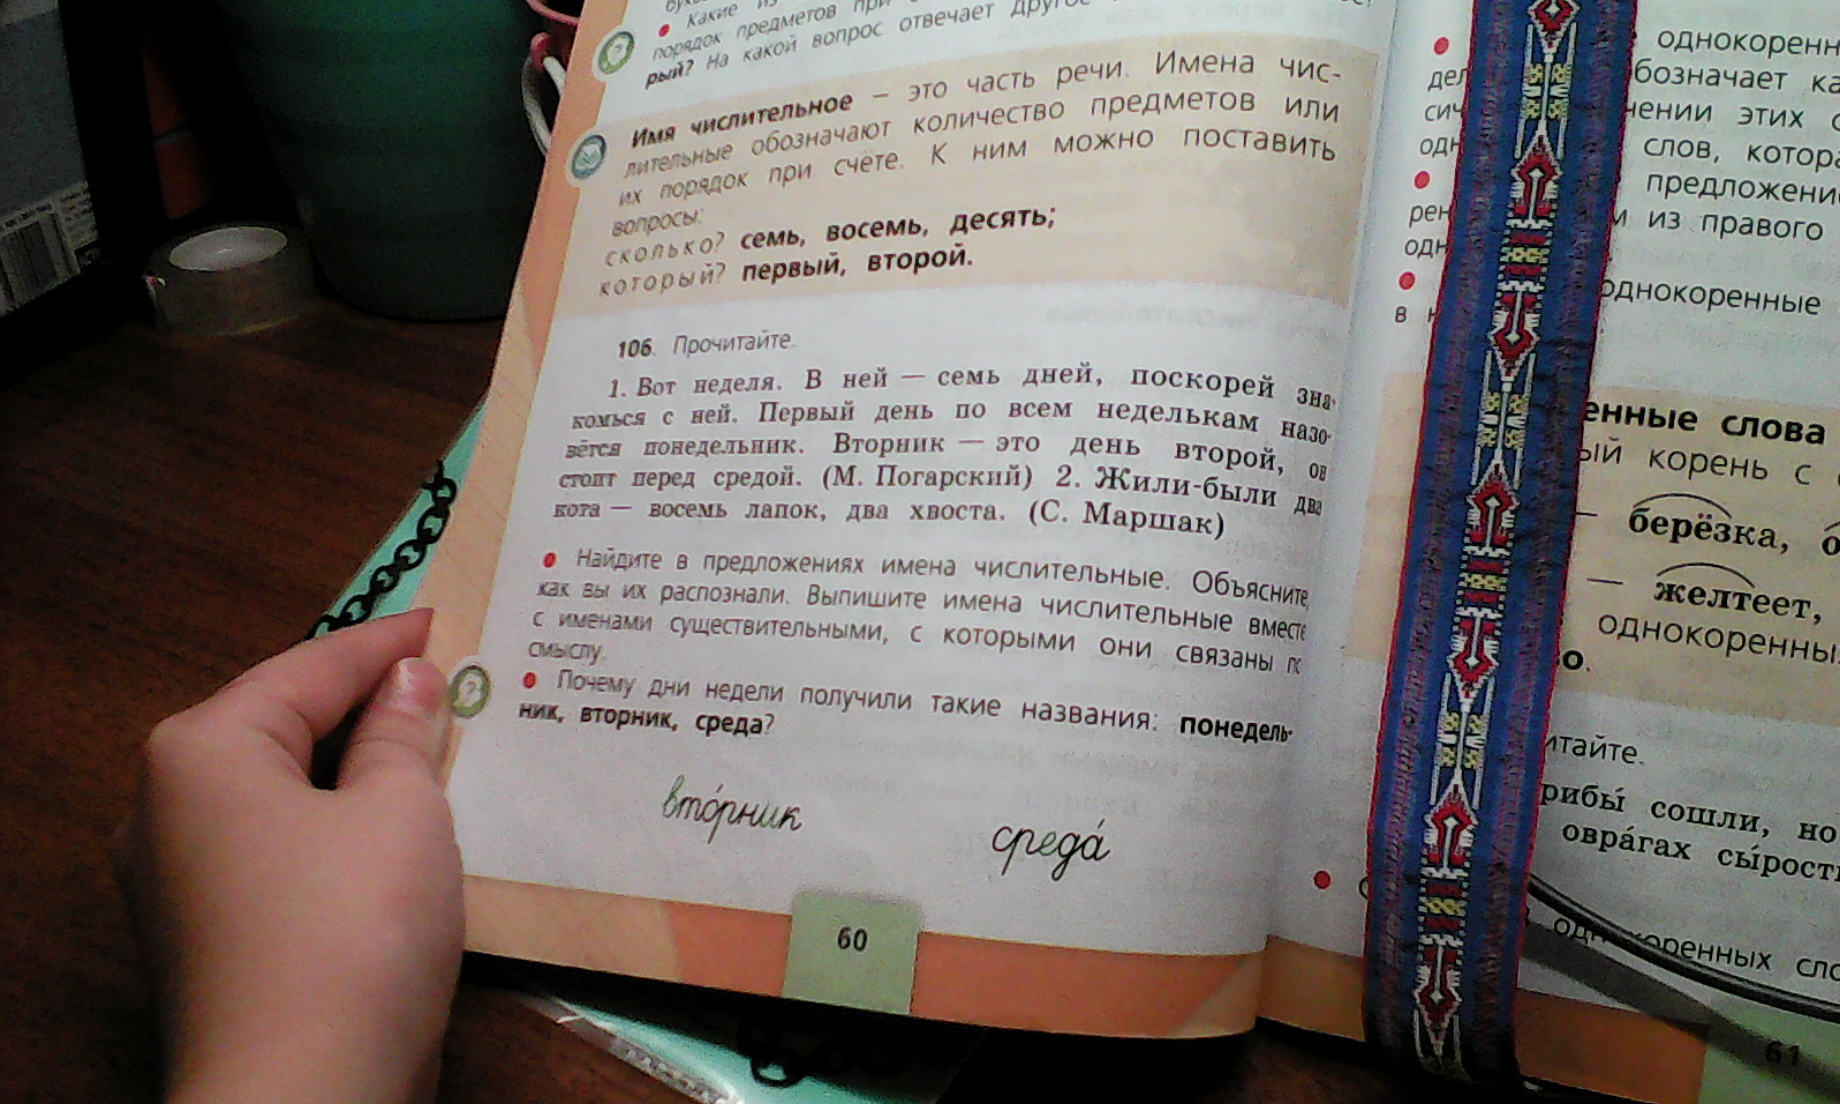 Какие
порядок предметов при
рый? На какой вопрос отвечает другое
Имя числительное – это часть речи. Имена чис-
лительные обозначают количество предметов или
их порядок при счёте. К ним можно поставить
вопросы:
сколько? семь, восемь, десять;
который? первый, второй.
106. Прочитайте.
1. Вот неделя. В ней — семь дней, поскорей зна-
комься с ней. Первый день по всем неделькам назо-
вётся понедельник. Вторник — это день второй, он
стоит перед средой. (М. Погарский) 2. Жили-были два
кота — восемь лапок, два хвоста. (С. Маршак)
• Найдите в предложениях имена числительные. Объясните,
как вы их распознали. Выпишите имена числительные вместе
с именами существительными, с которыми они связаны по
смыслу.
• Почему дни недели получили такие названия: понедель-
ник, вторник, среда?
вто́рник среда́
60
однокоренн
дел бозначает ка
сич нении этих
одн слов, котора
предложени
рен м из правого
одн
однокоренные
в н
енные слова
ый корень с
— берёзка,
— желтеет,
однокоренны
во.
итайте.
рибы́ сошли, но
овра́гах сы́рост
коренных сло
61